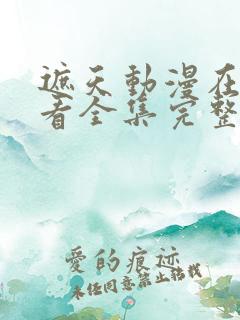 遮天動漫在
看全集完整
愛的痕迹
未经同意禁止转载